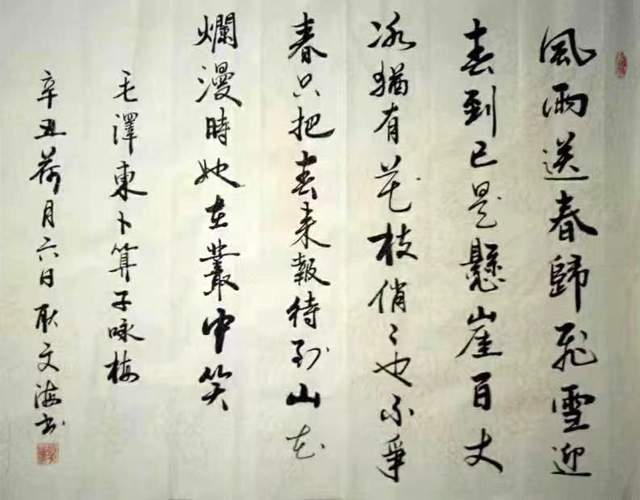 風雨送春歸飛雪迎
春到已是懸崖百丈
冰猶有花枝俏俏也不爭
春只把春來報待到山花
爛漫時她在叢中笑
毛澤東卜算子咏梅
辛丑荷月六日耿文海書